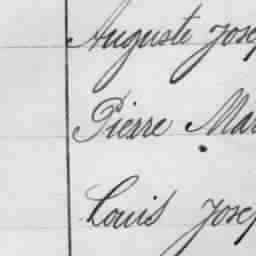 Auguste Josep
Pierre Mar
Louis Josep